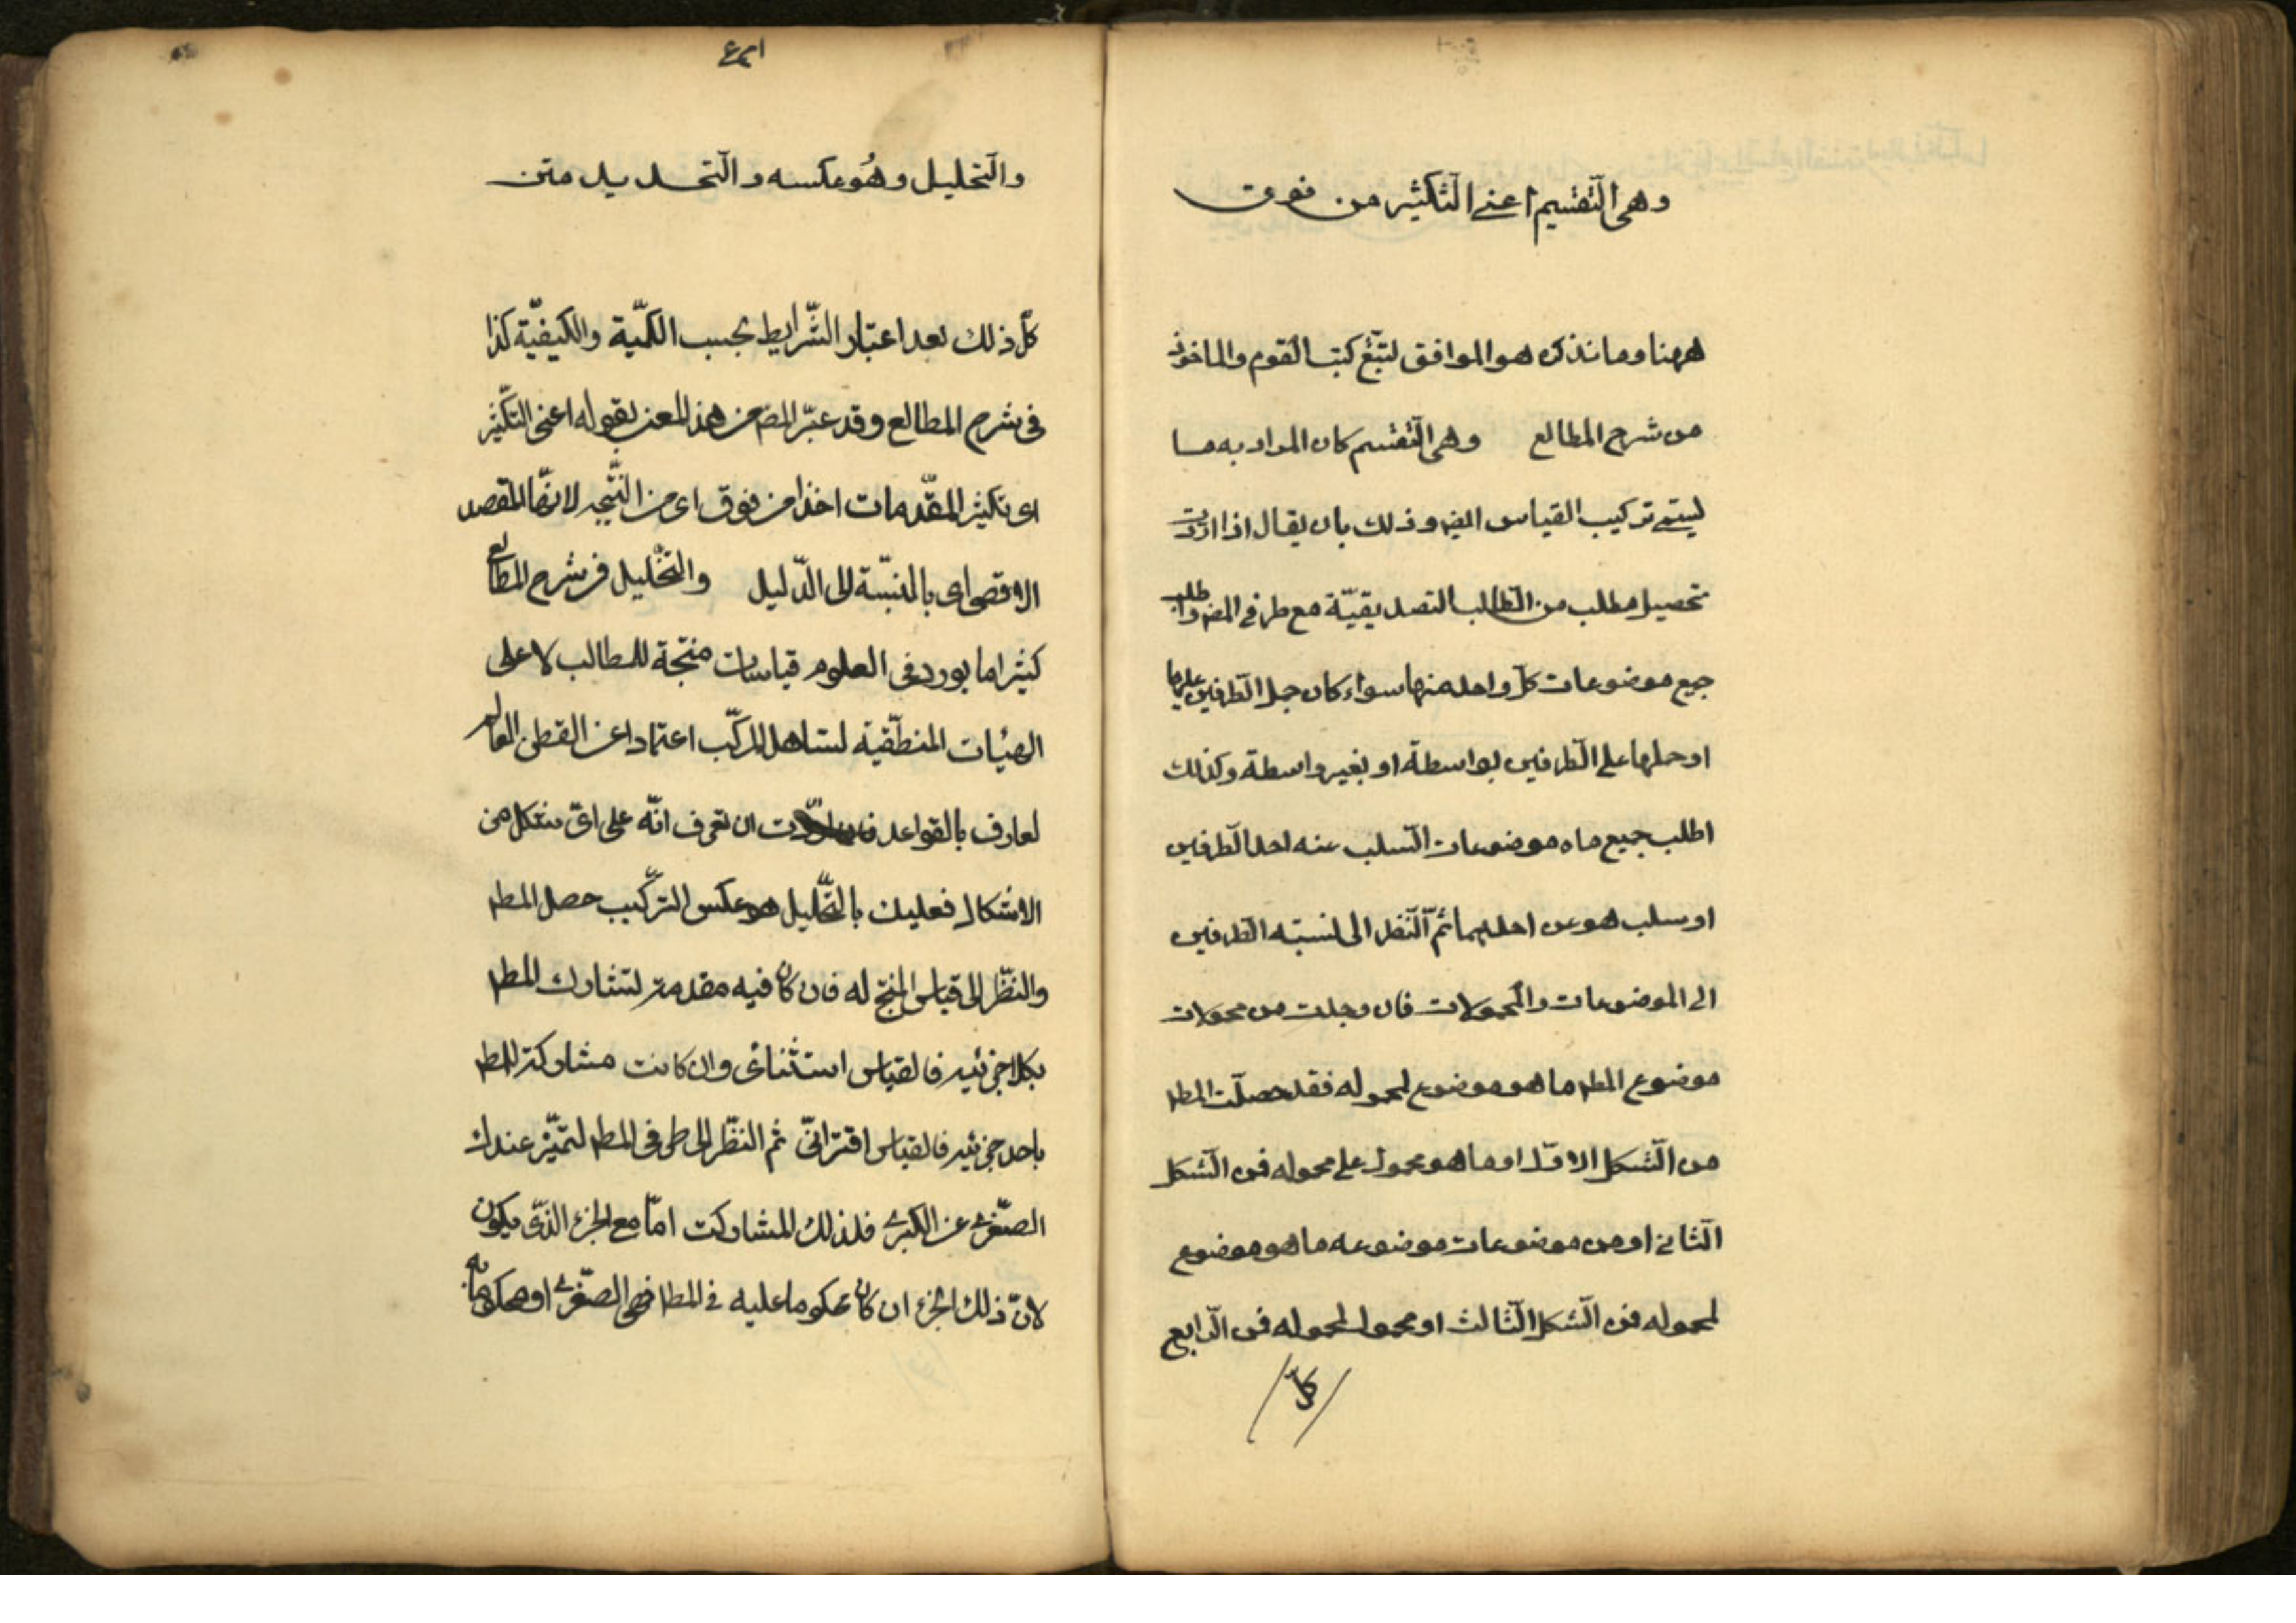 وهى التقسيم اعنے التكثير من فوق
ههنا وما نذكره هو الموافق لتتبّع كتب القوم والماخوذ
من شرح المطالع وهى التقسيم كان المراد به ما
يسمّى تركيب القياس ايضه وذلك بان يقال اذا اردت
تحصيل مطلب من المطالب التصديقيّة ضع طرفى المط واطلب
جميع موضوعات كلّ واحد منهما سواء كان حمل الطرفين عليها
او حملها على الطرفين بواسطة او بغير واسطة وكذلك
اطلب جميع ماه موضوعات السلب عنه احد الطرفين
او سلب هو عن احدهما ثمّ النظر الى نسبته الطرفين
الى الموضوعات والمحمولات فان وجدت من محمولات
موضوع المط ما هو موضوع لمحموله فقد حصلت المط
من الشكل الاوّل او ما هو محمول على محموله فمن الشكل
الثانى او من موضوعات موضوعه ما هو موضوع
لمحموله فمن الشكل الثالث او محمول لمحموله فمن الرابع
كلّ
والتحليل وهُو عكسه والتحديد متن
كلّ ذلك بعد اعتبار الشّرايط بحسب الكمّية والكيفيّة كذا
فى شرح المطالع وقد عبّر المض عن هذ المعنى بقوله اعنى التّكثير
اى تكثير المقّدمات اخذا من فوق اى من النّتيجه لانّها المقصد
الاقصى اى بالنسبّة الى الدّليل والتحّليل فى شرح المطالع
كثيرا ما يورد فى العلوم قياسات منتجة للمطالب لا على
الهيئات المنطقّية لتساهل المركّب اعتمادا عن الفطن العالم
لعارف بالقواعد فان اردت ان تعرف انّه على اىّ شكل من
الاشكال فعليك بالتحّليل هو عكس الترّكيب حصل المط
والنظّر الى قياس المنتج له فان كان فيه مقدمة لتشارك المط
بكلا جزئيه فالقياس استثنائى وان كانت مشاركة للمط
باحد جزئيه فالقياس اقترانىّ ثم النظّر الى طرفى المط لتميّز عندك
الصّغرى عن الكبرى فلذلك المشاركت امّا مع الجزء الذّى يكون
لانّ ذلك الجزء ان كان محكوما عليه فى المط فهى الصّغرى او محكوما به